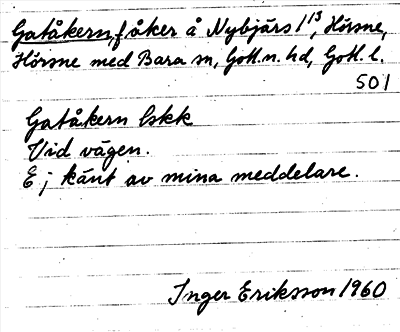 Gatåkern, f åker å Nybjärs 1¹³, Hörsne,
Hörsne med Bara sn, Gotl.n. hd, Gotl. l.
501
Gatåkern lskk
Vid vägen.
Ej känt av mina meddelare.
Inger Eriksson 1960